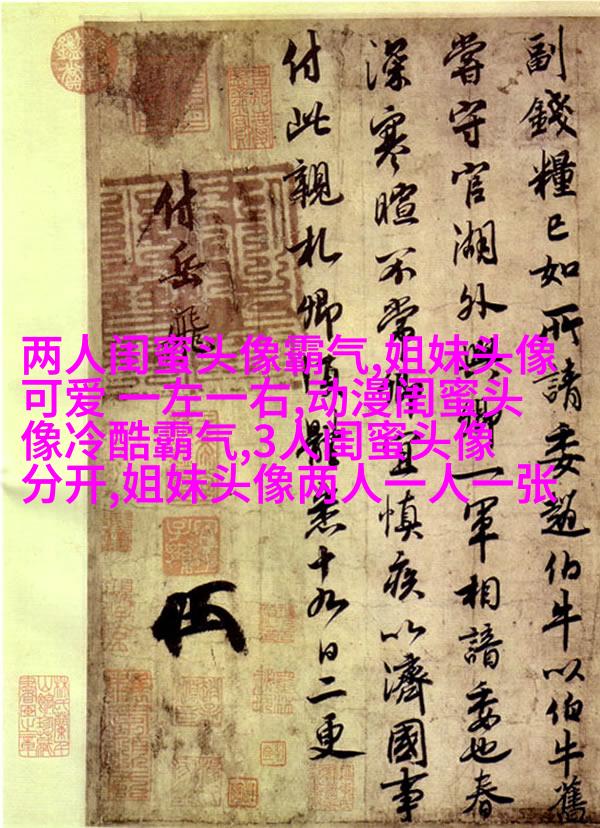 两人闺蜜头像霸气,姐妹头像
可爱 一左一右,动漫闺蜜头
像冷酷霸气,3人闺蜜头像
分开,姐妹头像两人一人一张
副錢糧已如所請委趙伯牛以伯牛舊
嘗守官湖外與卿一軍相諳委也春
深寒暄不常卿宜慎疾以濟國事
付此親札卿須體悉十九日二更
付岳飛